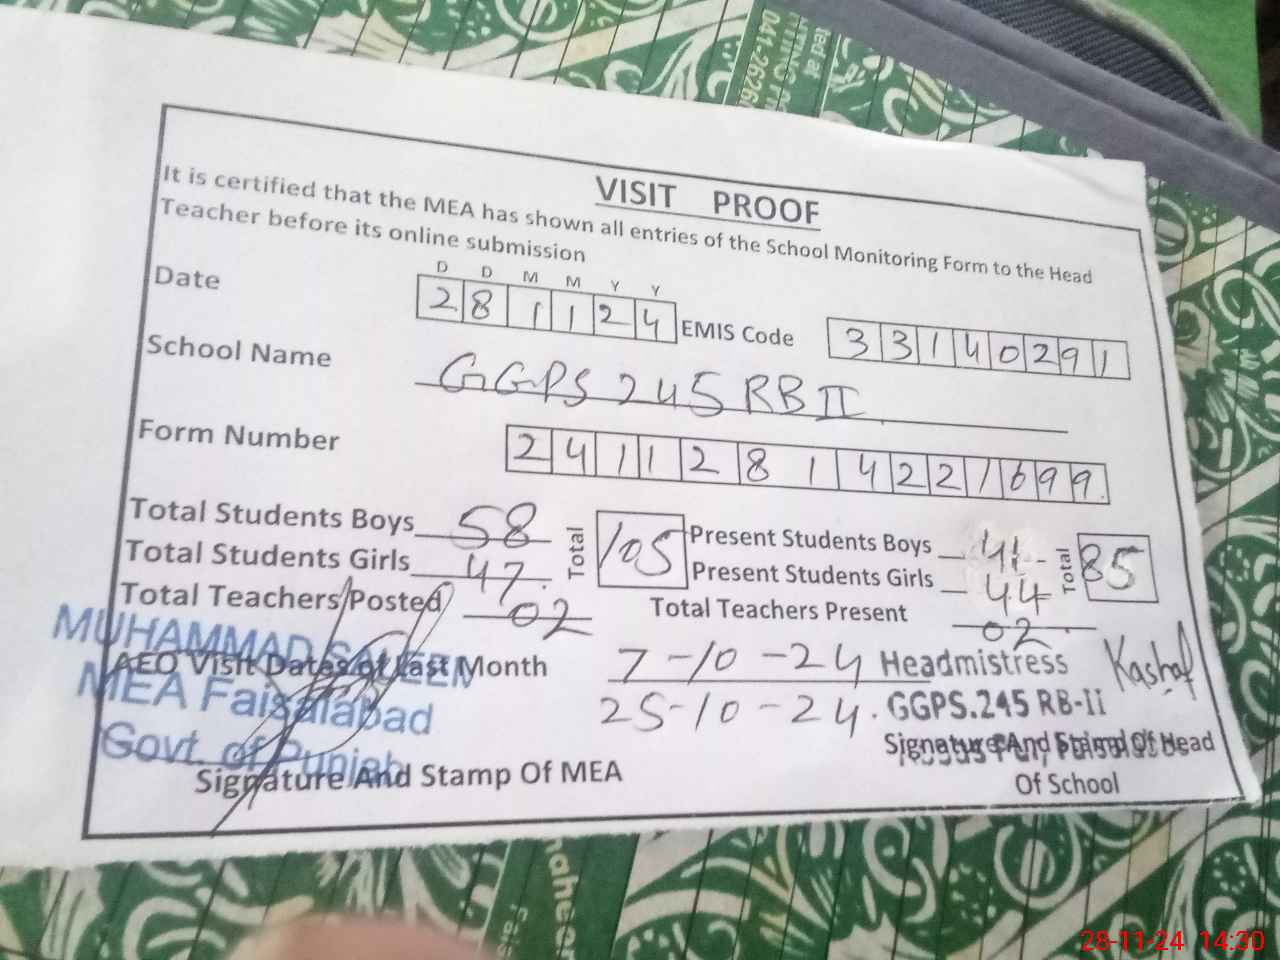 ted at
041-2626
VISIT PROOF
It is certified that the MEA has shown all entries of the School Monitoring Form to the Head
Teacher before its online submission
D D M M Y Y
Date 2 8 1 1 2 4 EMIS Code 3 3 1 4 0 2 9 1
School Name GGPS 245 RB II
Form Number 2 4 1 1 2 8 1 4 2 2 1 6 9 9
Total Students Boys 58 Total 105 Present Students Boys 41 Total 85
Total Students Girls 47 Present Students Girls 44
Total Teachers Posted 02 Total Teachers Present 02
MUHAMMAD SALEEN
AEO Visit Dates of Last Month 7-10-24 Headmistress Kashaf
MEA Faisalabad 25-10-24. GGPS.245 RB-Ii
Govt. of Punjab
Signature And Stamp Of MEA Signature And Stamp Of Head
Of School
28-11-24 14:30